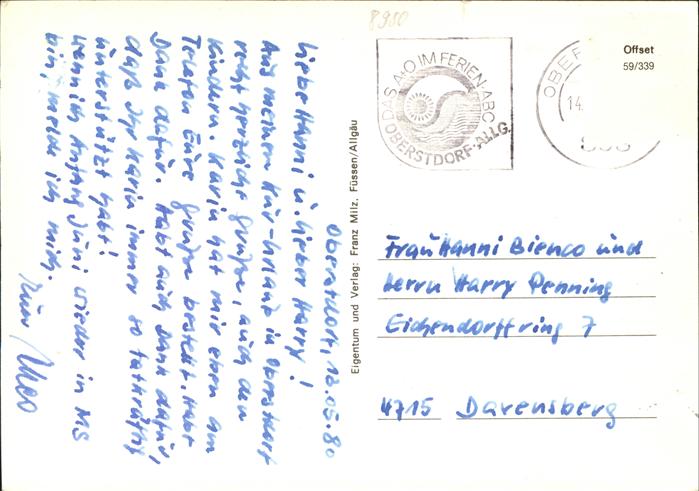 Oberstdorf, 12.05.80
Liebe Hanni u. lieber Harry!
Aus meinem Kur-Urlaub in Oberstdorf
recht herzliche Grüße, auch den
Kindern. Karin hat mir eben am
Telefon Eure Grüße bestellt. Habt
Dank dafür. Habt auch Dank dafür,
daß Ihr Karin immer so tatkräftig
unterstützt habt!
Wenn ich Anfang Juni wieder in MS
bin, melde ich mich.
Eigentum und Verlag: Franz Milz, Füssen/Allgäu
8980
DAS A+O IM FERIEN-ABC
OBERSTDORF·ALLG.
OBER
14.
Offset
59/339
Frau Hanni Bienco und
Herrn Harry Penning
Eichendorffring 7
4715 Davensberg